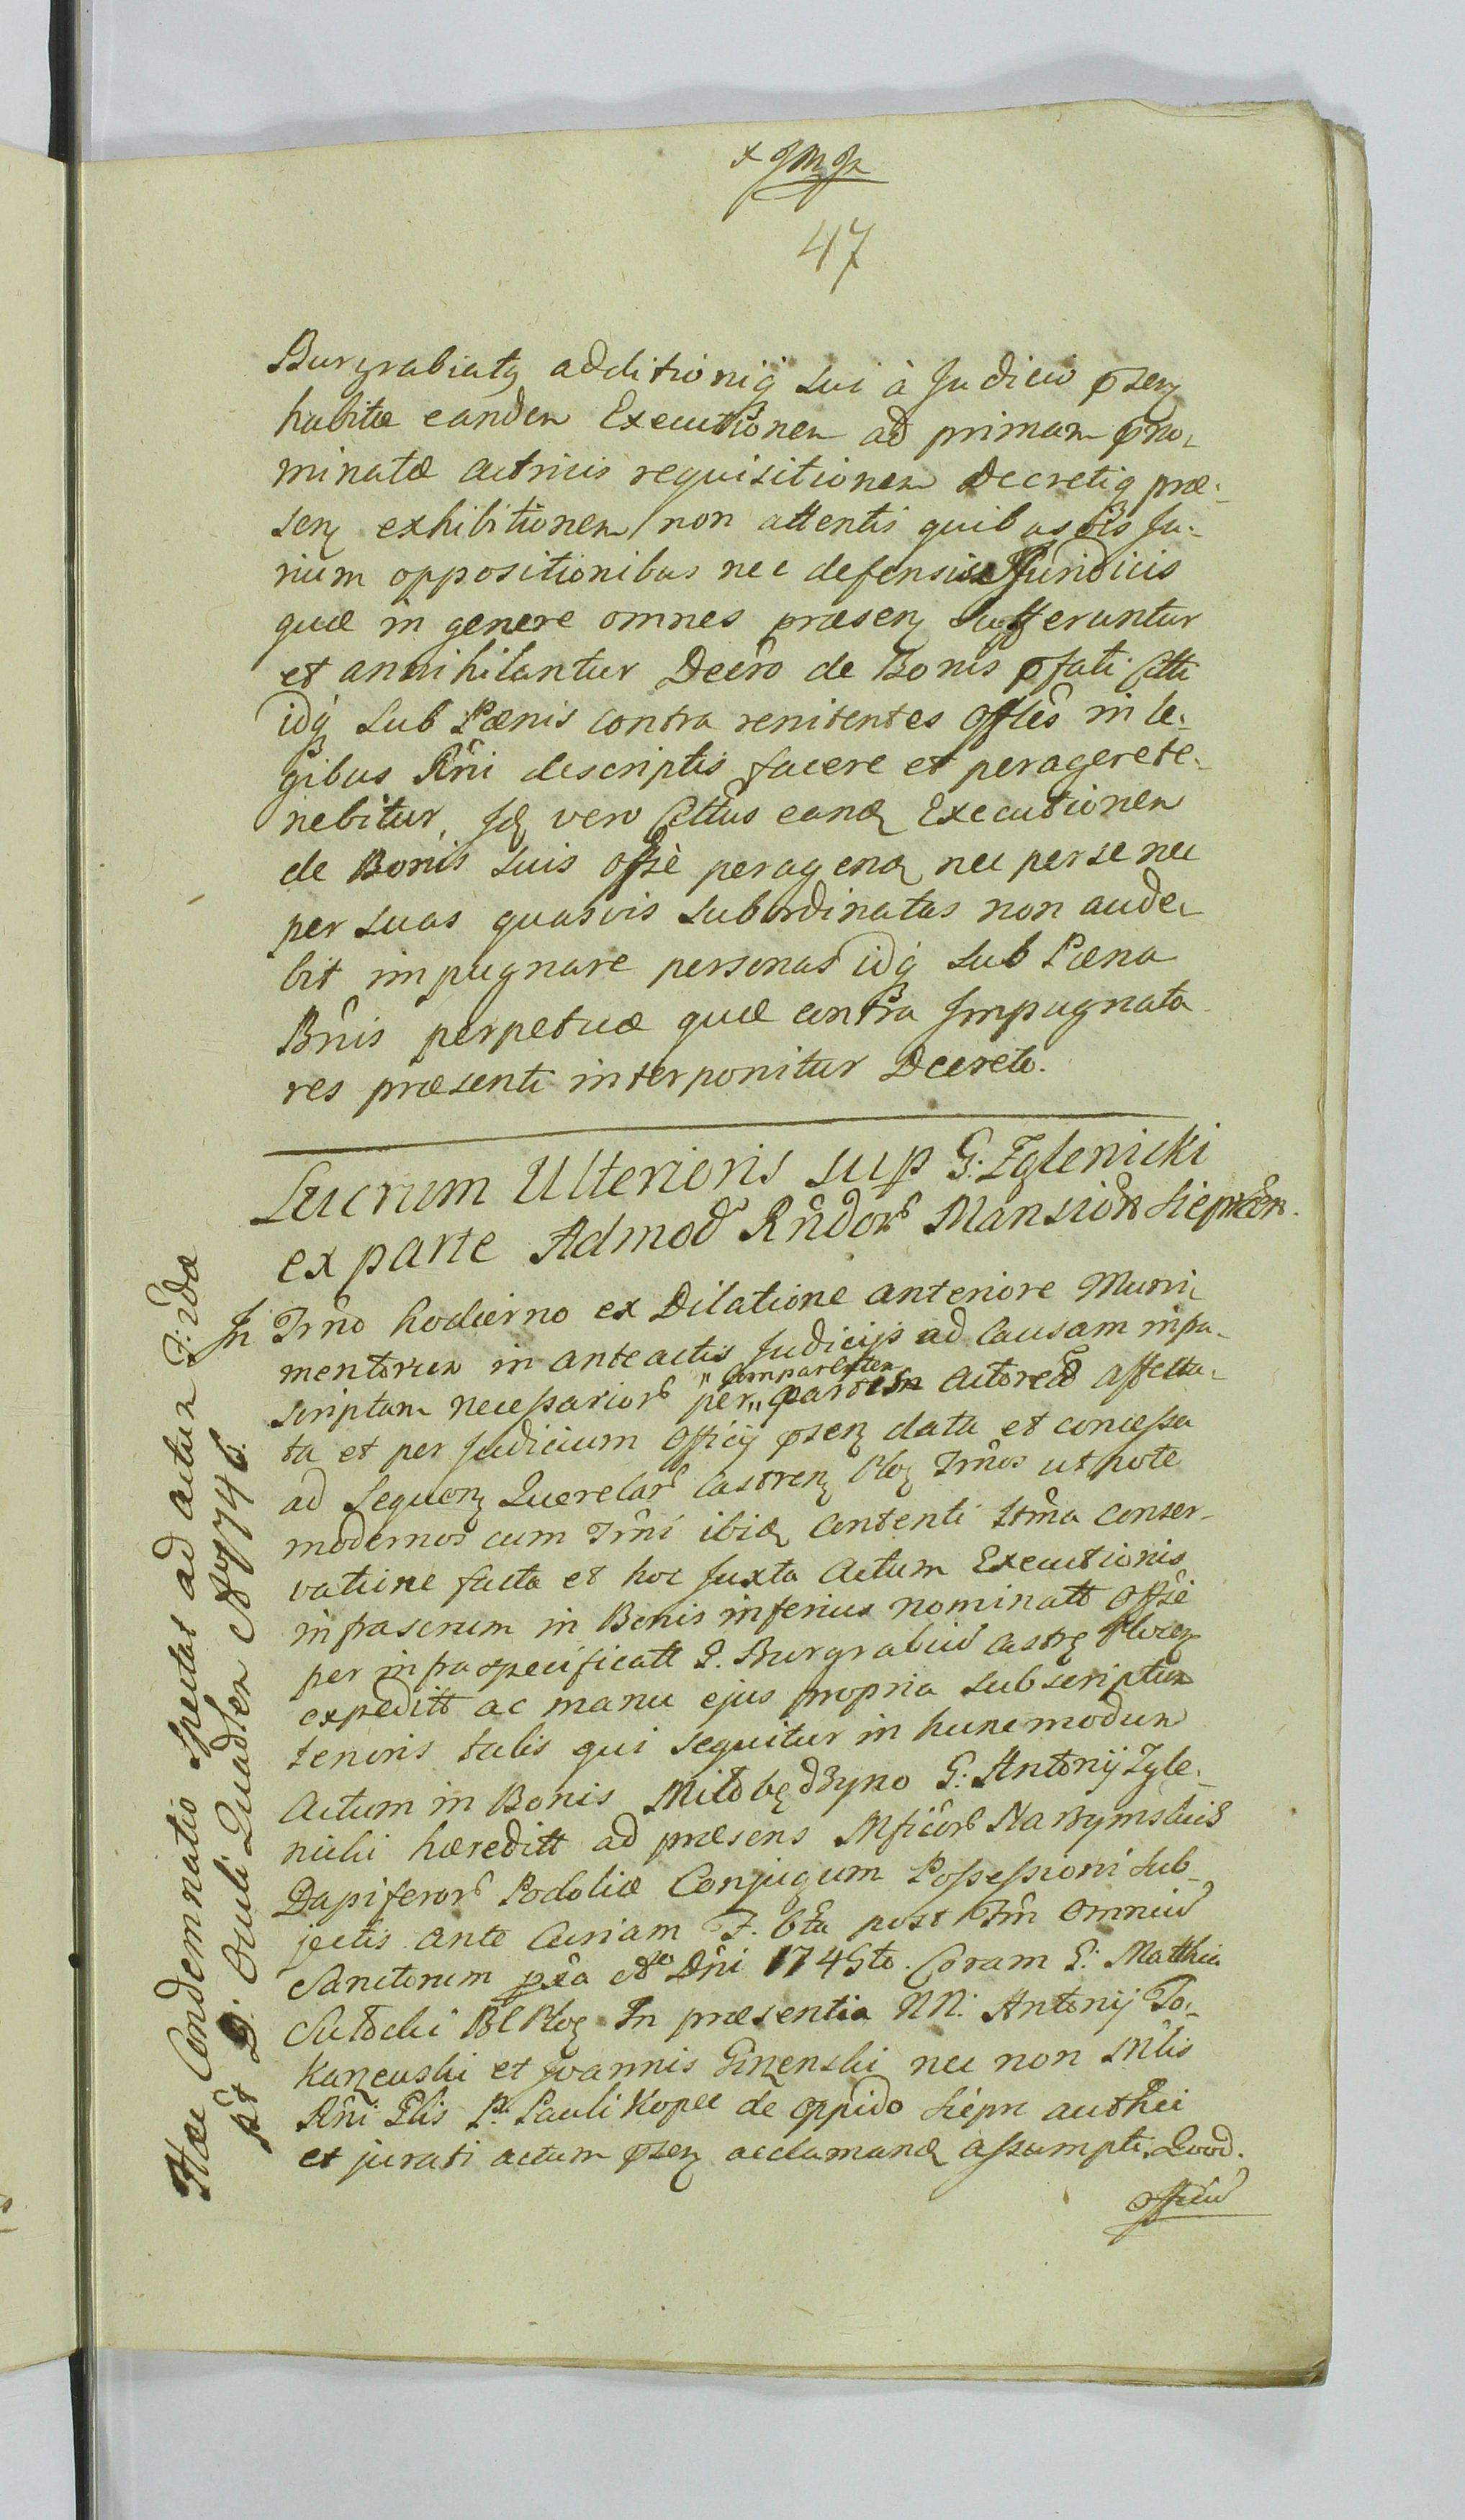 47
Burgrabiatq additioniq sui à Judicio psenz
habitæ eandem Executionem ad primam pno-
minatæ actricis requisitionem Decretiq præ-
senz exhibitionem non attentis quibusvis Ju-
rium oppositionibus nec defensis Juridicis
quæ in genere omnes præsenz sufferuntur
et annihilantur Decro de Bonis pfati Ctti
idq sub Pænis contra renitentes Offles in le-
gibus Rni descriptis facere et peragere te-
nebitur, Id vero Cttus eand Executionem
de Bonis suis offè peragend nec per se nec
per suas quasvis subordinatas non aude-
bit impugnare personas idq sub Pæna
Bnis perpetuæ quæ contra Impugnato
res præsenti interponitur Decreto.
Lucrum Ulterioris sup G: Zglenicki
ex parte Admod Rndor Mansion Siepncen.
In Trno hodierno ex Dilatione anteriore Muni-
mentorum in anteactis Judicijs ad Causam infra-
scriptam necessarior per "Comparentem" partem Actoream affecta-
ta et per Judicium Officij psenz data et concessa
ad sequenz Querelar Castrenz Ploc Trnos utpote
modernos cum Trni ibid contenti strna conser-
vatione facta et hoc Juxta Actum Executionis
infrascrum in Bonis inferius nominatt offsè
per infraspecificatt G. Burgrabiu Castr Plocen
expeditt ac manu ejus propria subscriptum
tenoris talis qui sequitur in hunc modum
Actum in Bonis Miłobędzyno G: Antonij Zgle-
nicki hæreditt ad præsens Mficor Narzymskie
Dapiferor Podoliæ Conjugum Possessioni sub-
jectis ante Curiam F. 6ta post Fm Omniu
Sanctorum pxa Ao Dni 1745to. Coram G: Matthia
Sutocki BC Ploc In præsentia NN: Antonij To-
karzewski et Joannis Ginenski nec non Mlis
Rni Glis P: Pauli Kopec de oppido Siepr authei
et jurati actum psenz acclamand assumpti. Quod.
Officiu
Hæc Condemnatio Spectat ad actum F: 2da
pt D: Oculi Quadlem Ao 1746.